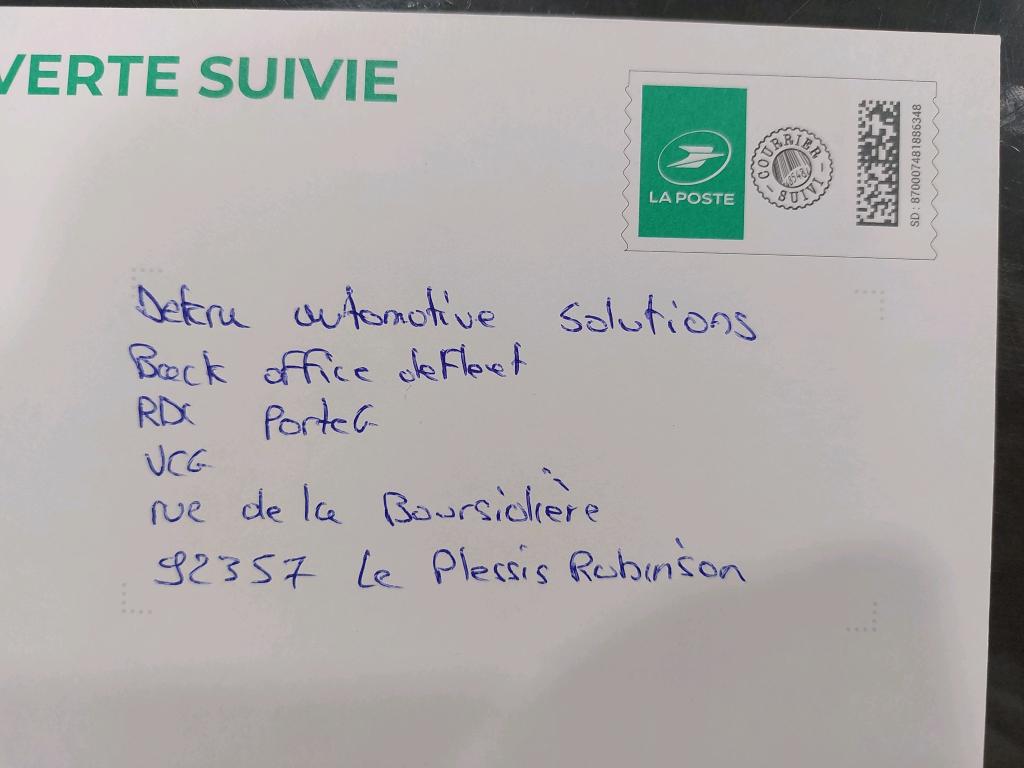 VERTE SUIVIE
LA POSTE
COURRIER SUIVI
SD : 870007481886348
automotive solutions
Back office defleet
RDC Porte G
VCG
rue de la Boursidière
92357 Le Plessis Robinson